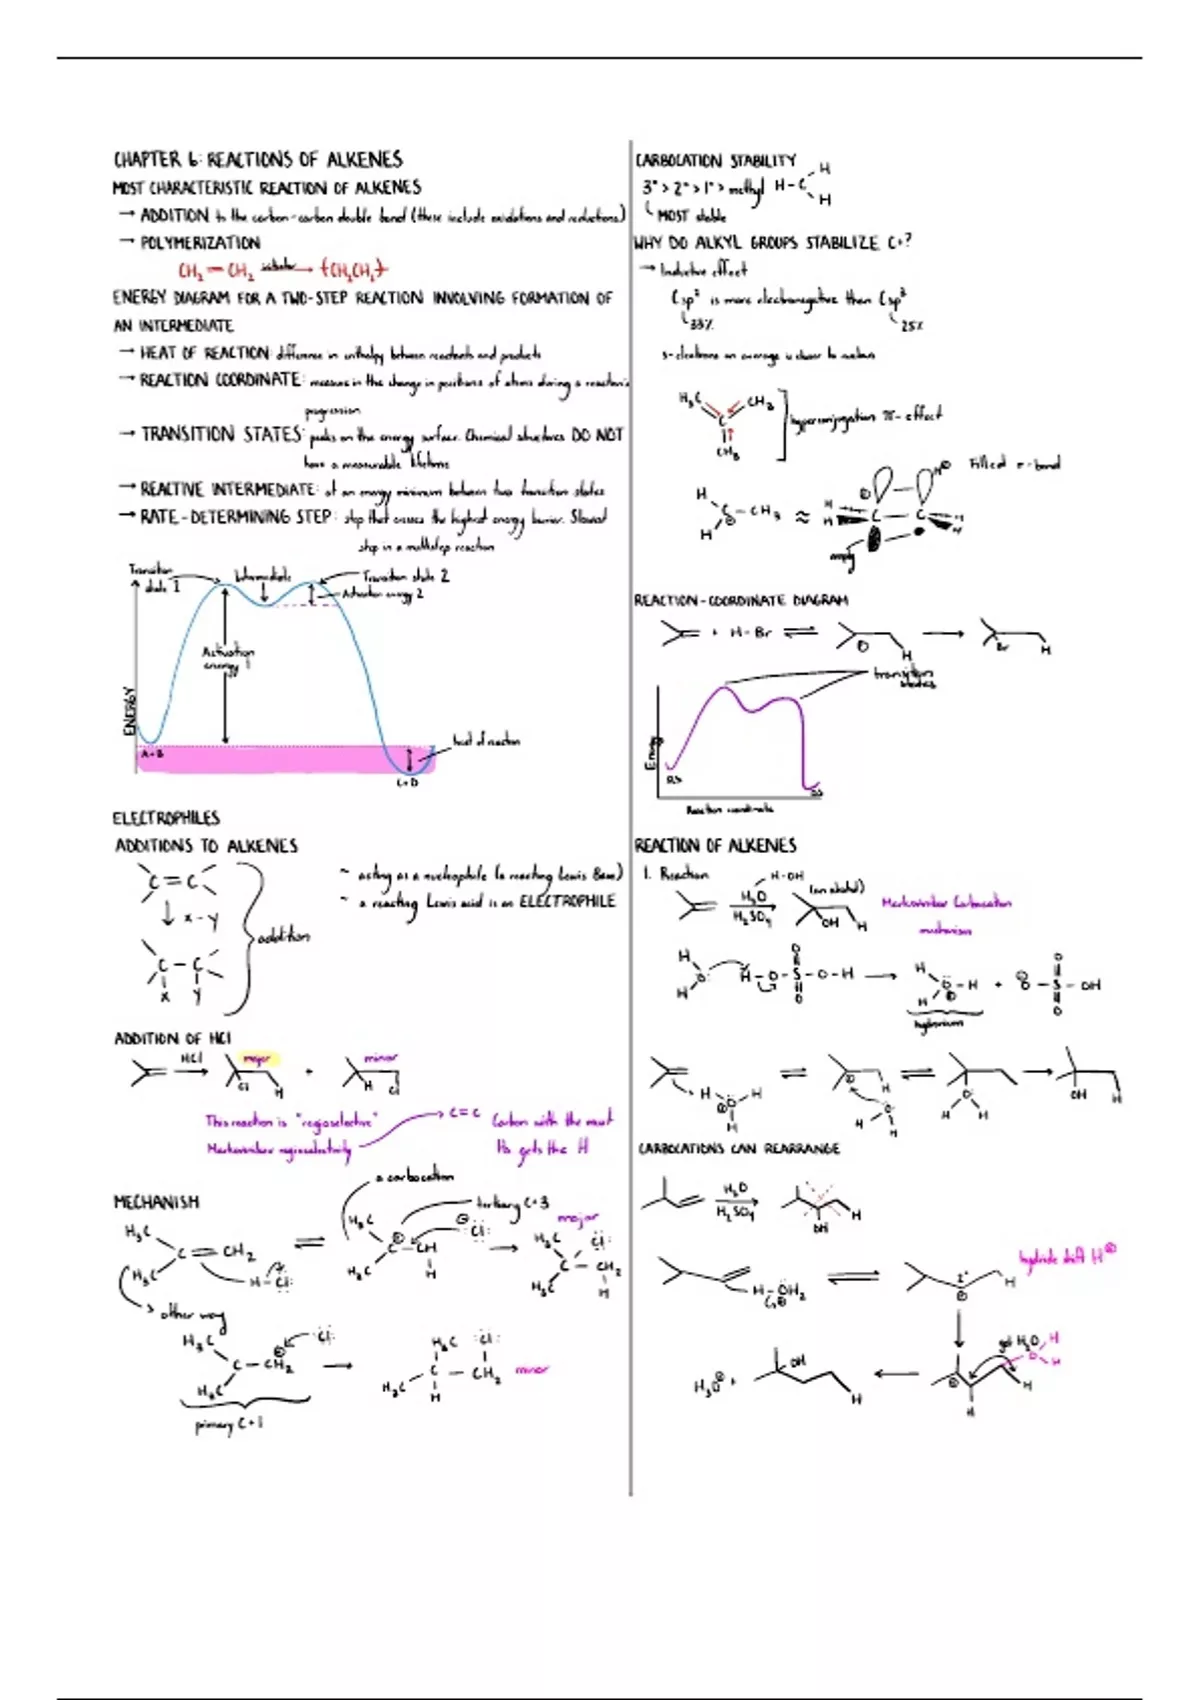 CHAPTER 6: REACTIONS OF ALKENES
MOST CHARACTERISTIC REACTION OF ALKENES
→ ADDITION to the carbon-carbon double bond (these include oxidations and reductions)
→ POLYMERIZATION
CH₂=CH₂ initiator → {CH₂CH₂}
ENERGY DIAGRAM FOR A TWO-STEP REACTION INVOLVING FORMATION OF
AN INTERMEDIATE
→ HEAT OF REACTION: difference in enthalpy between reactants and products
→ REACTION COORDINATE: measure in the change in positions of atoms during a reaction's
progression
→ TRANSITION STATES: peaks on the energy surface. Chemical structures DO NOT
have a measurable lifetime
→ REACTIVE INTERMEDIATE: at an energy minimum between two transition states
→ RATE-DETERMINING STEP: step that crosses the highest energy barrier. Slowest
step in a multistep reaction
Transition state 1
Intermediate
Transition state 2
Activation energy 2
Activation energy 1
ENERGY
A+B
heat of reaction
C+D
ELECTROPHILES
ADDITIONS TO ALKENES
C=C
↓ X-Y
C-C
X Y
addition
~ acting as a nucleophile (a reacting Lewis Base)
~ a reacting Lewis acid is an ELECTROPHILE
ADDITION OF HCl
HCl
major
Cl H
+
minor
H Cl
This reaction is "regioselective"
Markovnikov regioselectivity
C=C
Carbon with the most
H's gets the H
MECHANISM
a carbocation
tertiary C+3
major
H₃C
C=CH₂
H₃C
H-Cl
H₃C
C-CH
H₃C
H
Cl
H₃C Cl
C-CH₂
H₃C H
other way
H₃C
C-CH₂
H₃C
Cl
primary C+1
H₃C Cl
H₃C-C-CH₂
H
minor
CARBOCATION STABILITY
3°>2°>1°>methyl
H-C
H
H
MOST stable
WHY DO ALKYL GROUPS STABILIZE C+?
→ Inductive effect
Csp² is more electronegative than Csp³
33%
25%
s-electrons on average is closer to nucleus
H₃C
CH₃
C
CH₃
hyperconjugation π-effect
H
C-CH₃
H
≈
H
H
C C
H
H
H
Filled σ-bond
empty
REACTION-COORDINATE DIAGRAM
+ H-Br
H
Br
H
transition states
Energy
Reaction coordinate
REACTION OF ALKENES
1. Reaction
H-OH
H₂O
H₂SO₄
(an alcohol)
OH H
Markovnikov Carbocation
mechanism
H
O
H
H-O-S-O-H
O
O
H
O-H
H
+
O-S-OH
O
O
hydronium
H O H
H
H
O
H H
O
H H
OH H
CARBOCATIONS CAN REARRANGE
H₂O
H₂SO₄
OH
H
H-OH₂
2°
H
hydride shift H
H₂O
H
O
H
H
H
OH
H
H₃O +